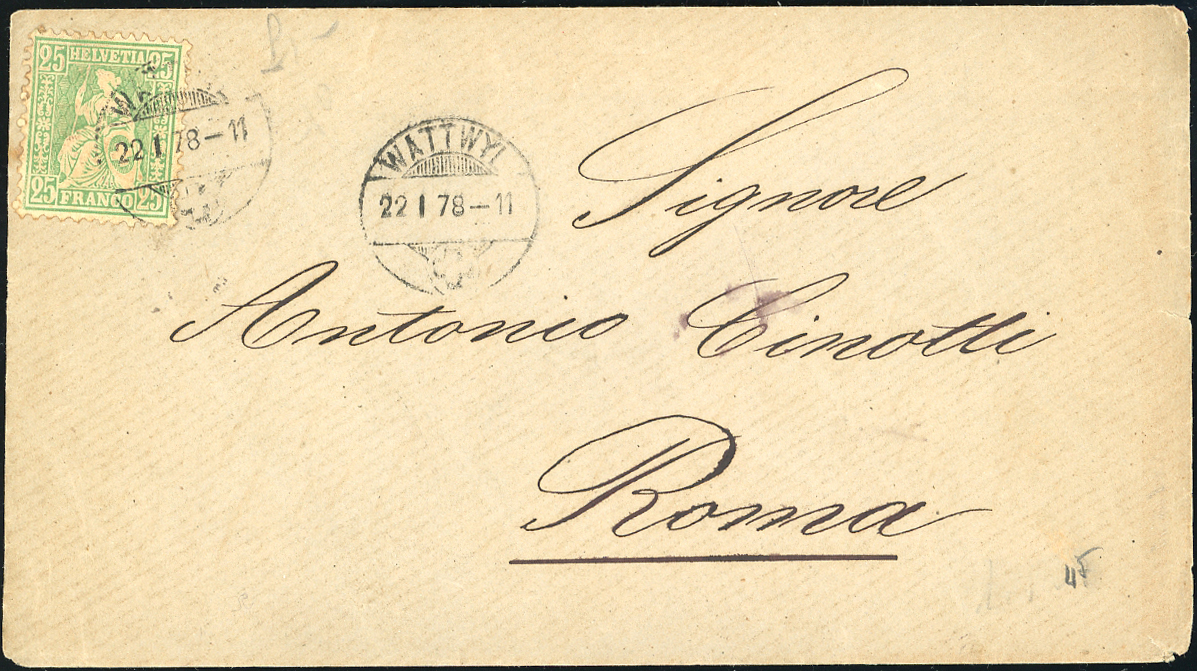 25 HELVETIA 25
25 FRANCO 25
22 I 78-11
WATTWYL
22 I 78-11
Signore
Antonio Cinotti
Roma